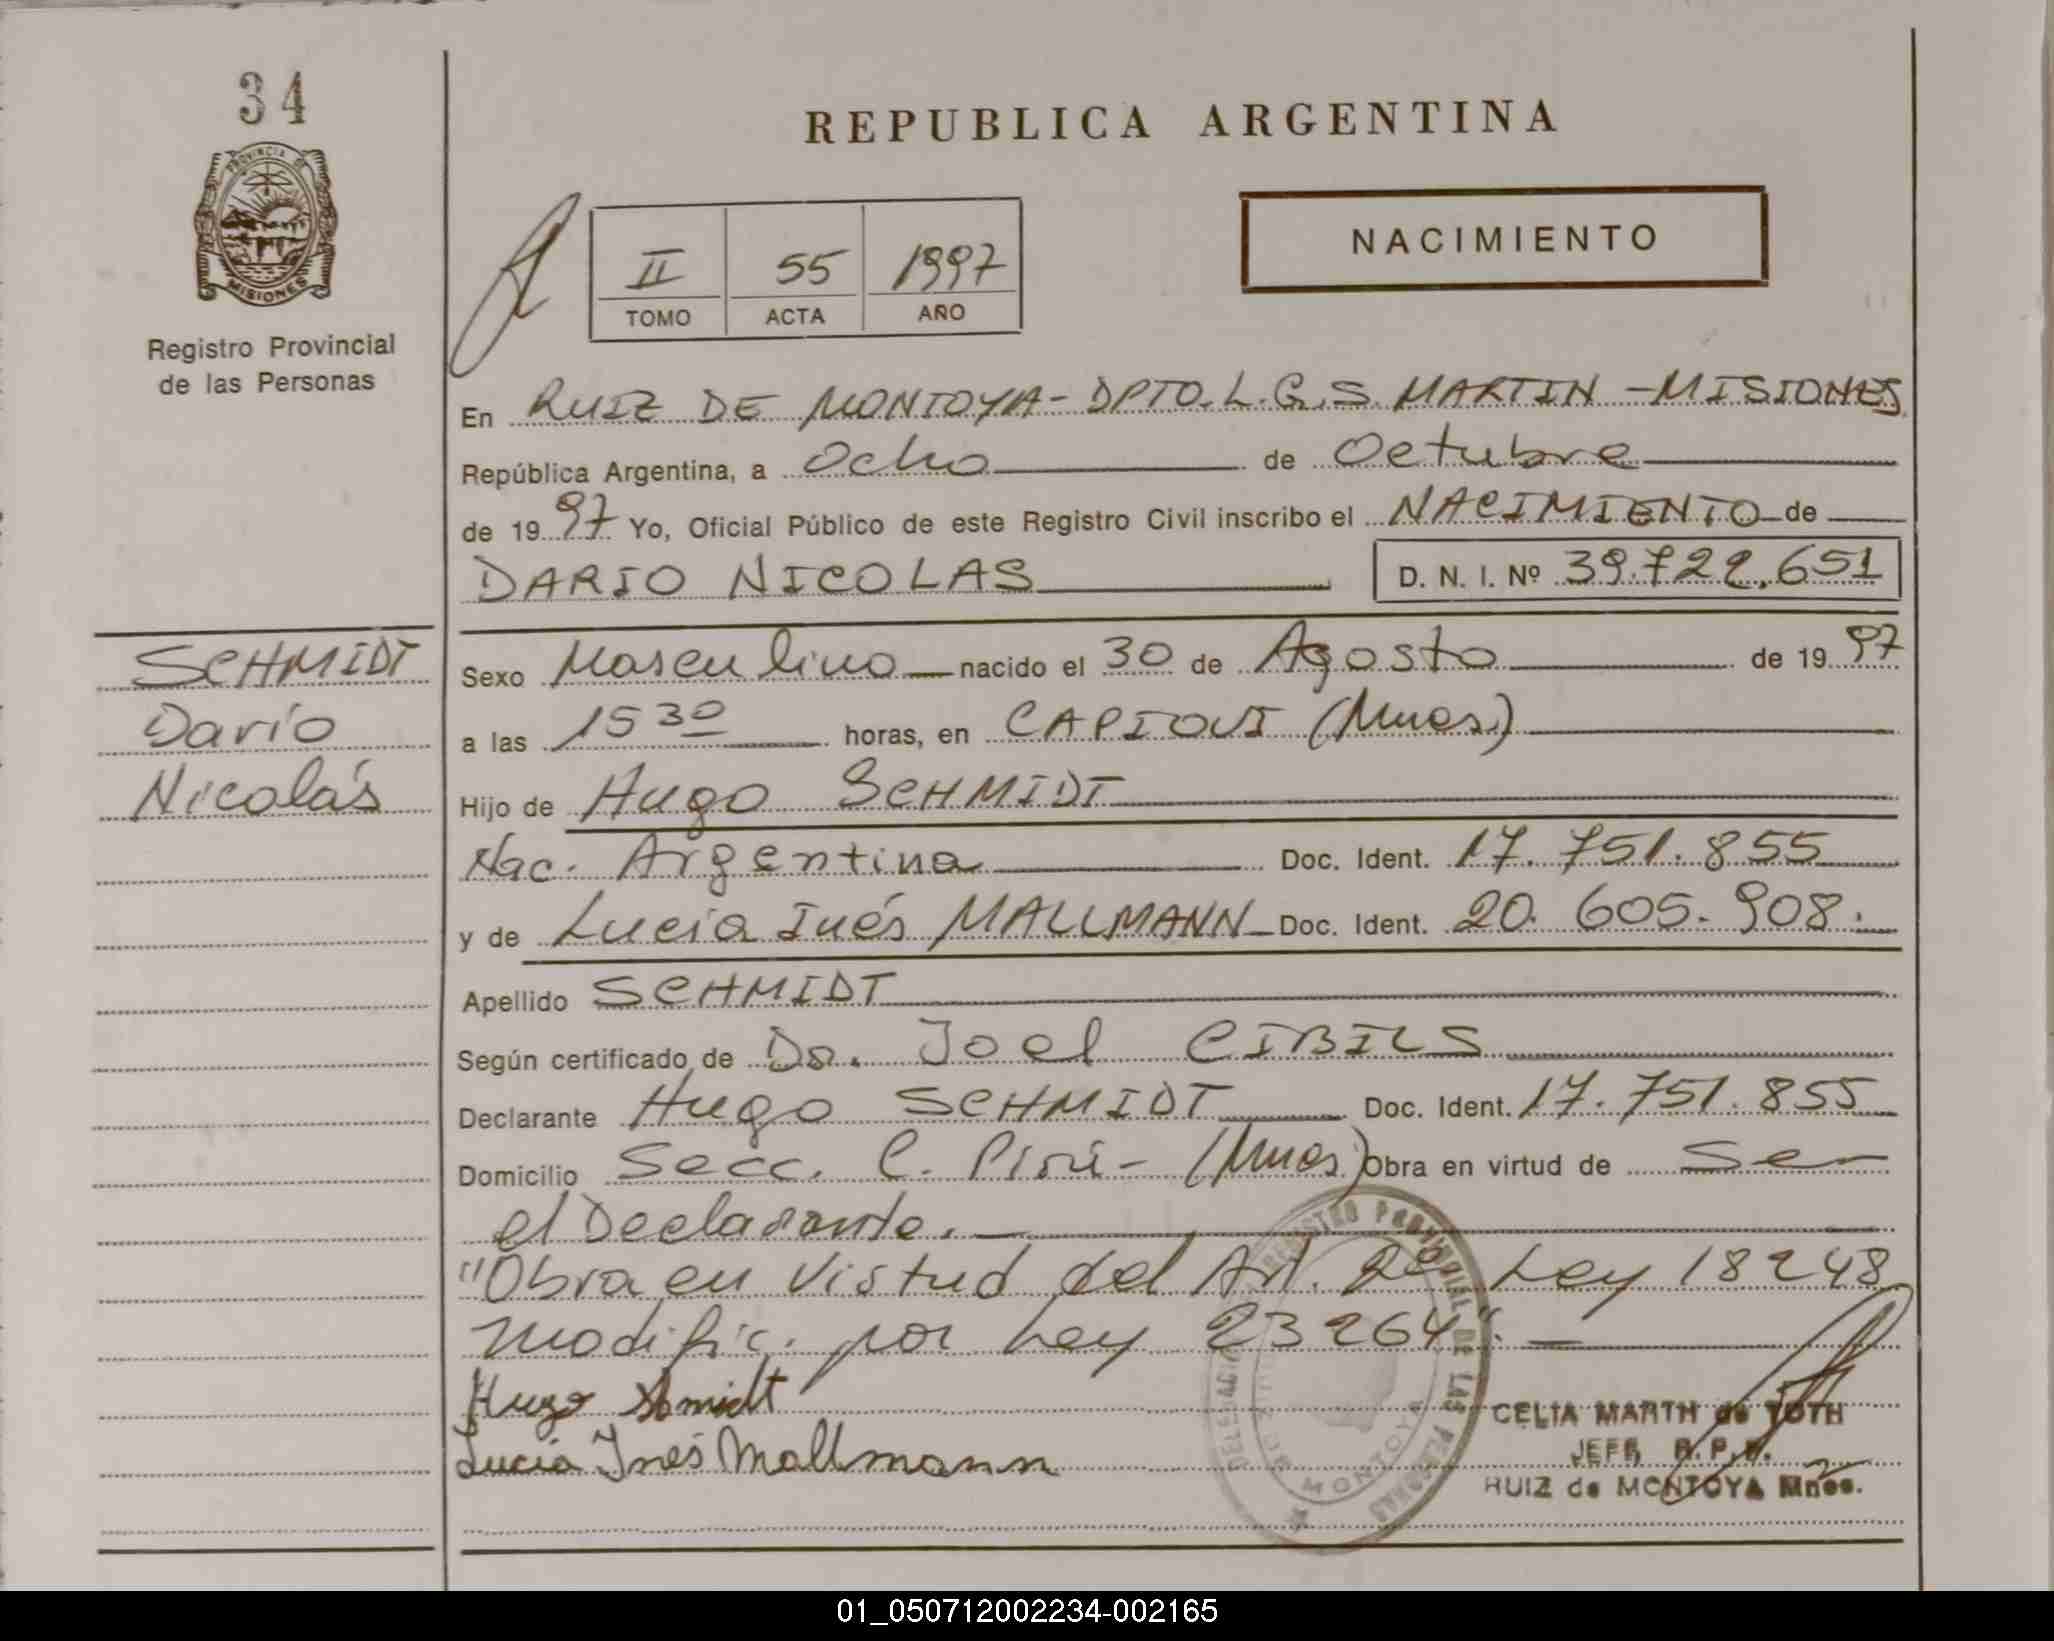 34
PROVINCIA DE
MISIONES
Registro Provincial
de las Personas
REPUBLICA ARGENTINA
NACIMIENTO
II 55 1997
TOMO ACTA AÑO
En RUIZ DE MONTOYA - DPTO. L.G.S. MARTIN - MISIONES
República Argentina, a Ocho de Octubre
de 1997 Yo, Oficial Público de este Registro Civil inscribo el NACIMIENTO de
DARIO NICOLAS D. N. I. Nº 39.722.651
SCHMIDT
Darío
Nicolás
Sexo Masculino nacido el 30 de Agosto de 1997
a las 15 30 horas, en CAPIOVI (Mnes.)
Hijo de Hugo SCHMIDT
Nac. Argentina Doc. Ident. 17.751.855
y de Lucía Inés MALLMANN Doc. Ident. 20.605.908.
Apellido SCHMIDT
Según certificado de Dr. Joel CIBILS
Declarante Hugo SCHMIDT Doc. Ident. 17.751.855
Domicilio Secc. C. Pirú - (Mnes) Obra en virtud de Ser
el Declarante.
"Obra en Virtud del Art. 2º Ley 18248
modific. por Ley 23264".
Hugo Schmidt
Lucia Inés Mallmann
REGISTRO PROVINCIAL DE LAS PERSONAS
MONTOYA
CELIA MARTH de TOTH
JEFE R.P.P.
RUIZ de MONTOYA Mnes.
01_050712002234-002165